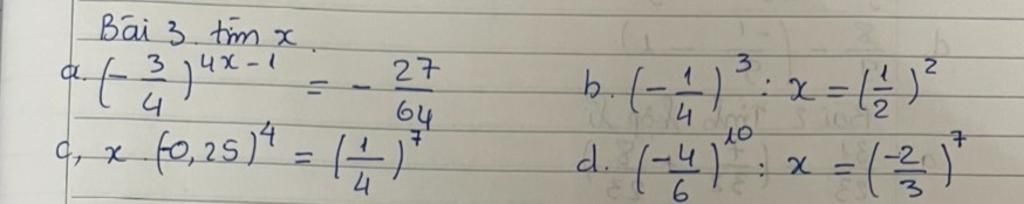 Bài 3. tìm x.
a. (-3/4)^(4x-1) = -27/64    b. (-1/4)^3 : x = (1/2)^2
c, x (-0,25)^4 = (1/4)^7    d. (-4/6)^10 : x = (-2/3)^7